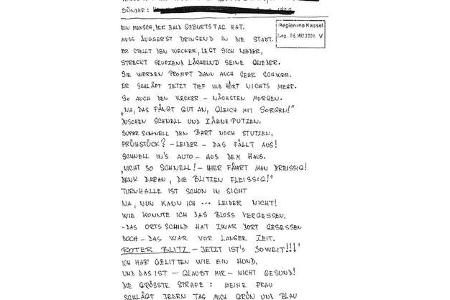 EIN MENSCH, DER BALD GEBURTSTAG HAT.
MUSS ÄUSSERST DRINGEND IN DIE STADT.
ER STELLT DEN WECKER, LEGT SICH NIEDER,
STRECKT GRUNZEND LÄCHELND SEINE GLIEDER.
SIE WERDEN PROMPT DANN AUCH GANZ
ER SCHLÄFT JETZT TIEF UND HÖRT NICHTS MEHR.
SO AUCH DEN WECKER - NÄCHSTEN MORGEN.
"NA, DAS FÄNGT GUT AN, GLEICH MIT SORGEN!"
DUSCHEN SCHNELL UND ZÄHNEPUTZEN.
SUPER SCHNELL DEN BART NOCH STUTZEN,
FRÜHSTÜCK? - LEIDER - DAS FÄLLT AUS!
SCHNELL IN'S AUTO - AUS DEM HAUS.
"NICHT SO SCHNELL! - HIER FÄHRT MAN DREISSIG!
DENK DARAN, DIE BLITZEN FLEISSIG!"
TURNHALLE IST SCHON IN SICHT
NA, NUN KANN ICH ... LEIDER NICHT!
WIE KONNTE ICH DAS BLOSS VERGESSEN.
- DAS ORTSSCHILD HAT ZWAR DORT GESESSEN
DOCH - DAS WAR VOR LANGER ZEIT.
ROTER BLITZ - JETZT IST'S SOWEIT!!!"
ICH HAB GELITTEN WIE EIN HUND,
UND DAS IST - GLAUBT MIR - NICHT GESUND!
DIE GRÖSSTE STRAFE: MEINE FRAU
SCHLÄGT JEDEN TAG MICH GRÜN UND BLAU
Regierung Kassel